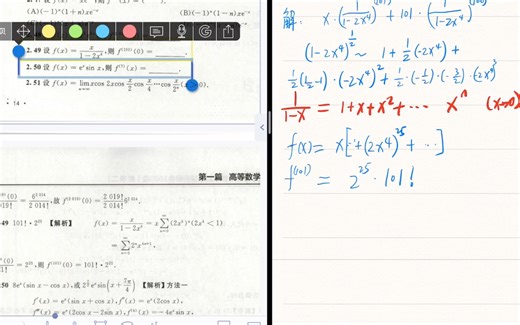 (A)(-1)ⁿ(1+n)xe⁻ˣ
(B)(-1)ⁿ(1-n)xe⁻ˣ
2.49 设 f(x)=x/(1-2x⁴),则 f⁽¹⁰¹⁾(0)=
2.50 设 f(x)=eˣsin x,则 f⁽⁷⁾(x)=
2.51 设 f(x)=lim cos x cos x/2 cos x/4 ⋯ cos x/2ⁿ
· 14 ·
第一篇 高等数学
49 101!·2²⁵ 【解析】 f(x)=x/(1-2x⁴)=x∑(2x⁴)ⁿ(2x⁴<1)
=∑2ⁿx⁴ⁿ⁺¹.
=2²⁵,则 f⁽¹⁰¹⁾(0)=101!·2²⁵.
50 8eˣ(sin x-cos x),或 2^(7/2)eˣsin(x+7π/4) 【解析】方法一
f'(x)=eˣ(sin x+cos x),f''(x)=eˣ(2cos x),
f'''(x)=eˣ(2cos x-2sin x),f⁽⁴⁾(x)=-4eˣsin x,
解: x·(1/(1-2x⁴))⁽¹⁰¹⁾+101·(1/(1-2x⁴))⁽¹⁰⁰⁾
(1-2x⁴)^½ ~ 1+½(-2x⁴)+
½(½-1)·(-2x⁴)²+½·(-½)·(-3/2)·(-2x⁴)³
1/(1-x)=1+x+x²+⋯ xⁿ (x→0)
f(x)=x[⋯+(2x⁴)²⁵+⋯]
f⁽¹⁰¹⁾=2²⁵·101!